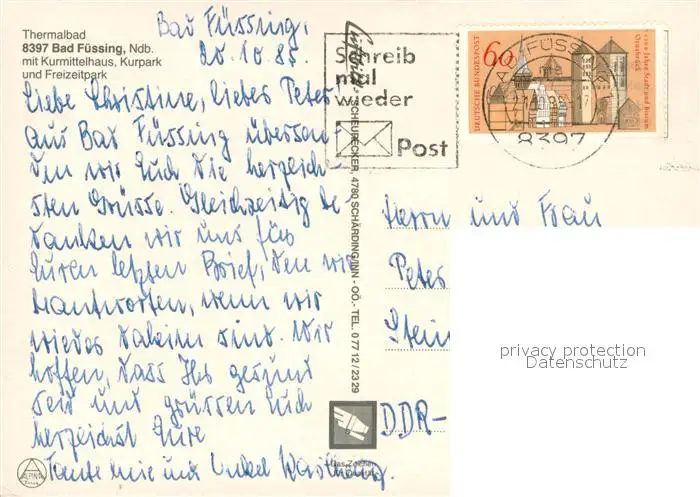 Thermalbad
8397 Bad Füssing, Ndb.
mit Kurmittelhaus, Kurpark
und Freizeitpark
Bad Füssing,
20.10.85.
Liebe Christine, liebes Peter,
aus Bad Füssing übersen-
den wir Euch die herzlich-
sten Grüsse. Gleichzeitig be-
danken wir uns fürs
Euren letzten Brief, den wir
beantworten, wenn wir
wieder daheim sind. Wir
hoffen, dass Ihr gesund
seid und grüssen Euch
herzlichst Eure
Tante Mie und Onkel
Luftbild
SCHEURECKER, 4780 SCHÄRDING/INN - OÖ. - TEL. 0 77 12 / 23 29
Schreib
mal
wieder
Post
60
DEUTSCHE BUNDESPOST
1200 Jahre Stadt und Bistum
Osnabrück
BAD FÜSSING
8397
Herrn und Frau
Peter
Stein
DDR-
privacy protection
Datenschutz
Das Zeichen
ALPINA